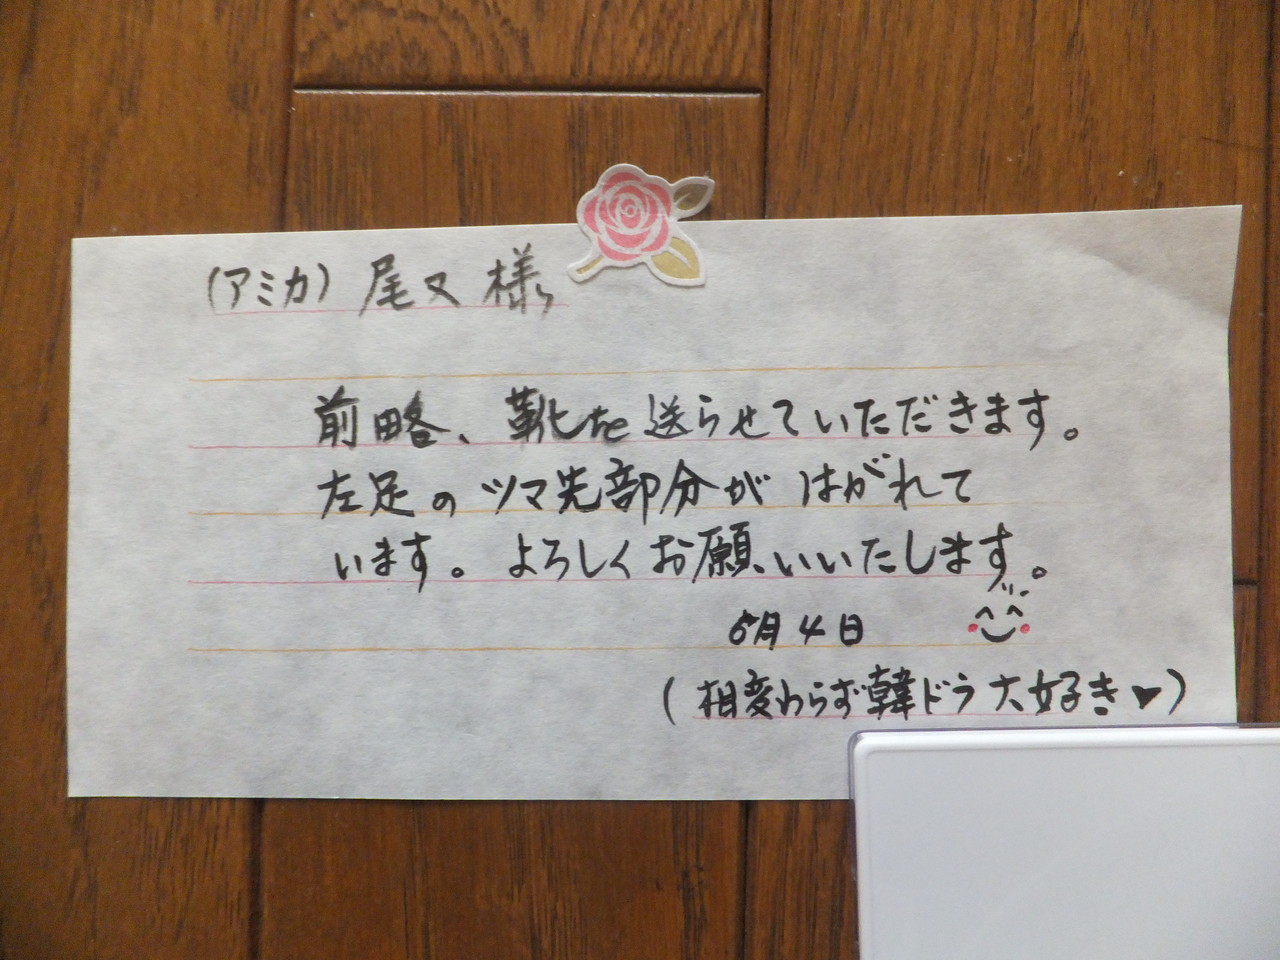 (アミカ) 尾又 様
前略、靴を送らせていただきます。
左足の ツマ先部分が はがれて
います。よろしくお願いいたします。
5月4日
(相変わらず韓ドラ大好き♥)